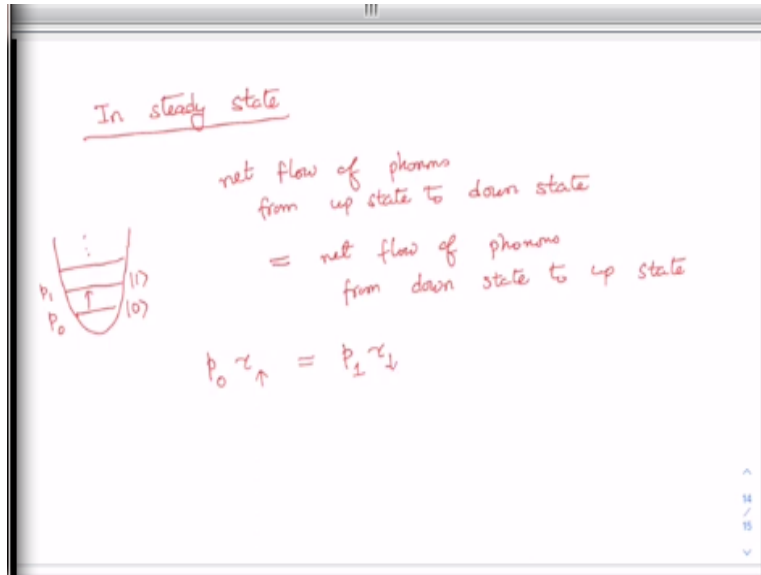 In steady state
net flow of phonons
from up state to down state
= net flow of phonons
from down state to up state
⋮
p₁ ↑ |1⟩
p₀ |0⟩
p₀ r↑ = p₁ r↓
14
/
15